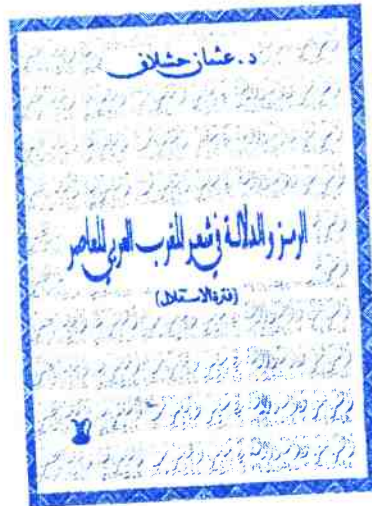 د. عثمان حشلاف
الرمز والدلالة في شعر المغرب العربي المعاصر
(فترة الاستقلال)